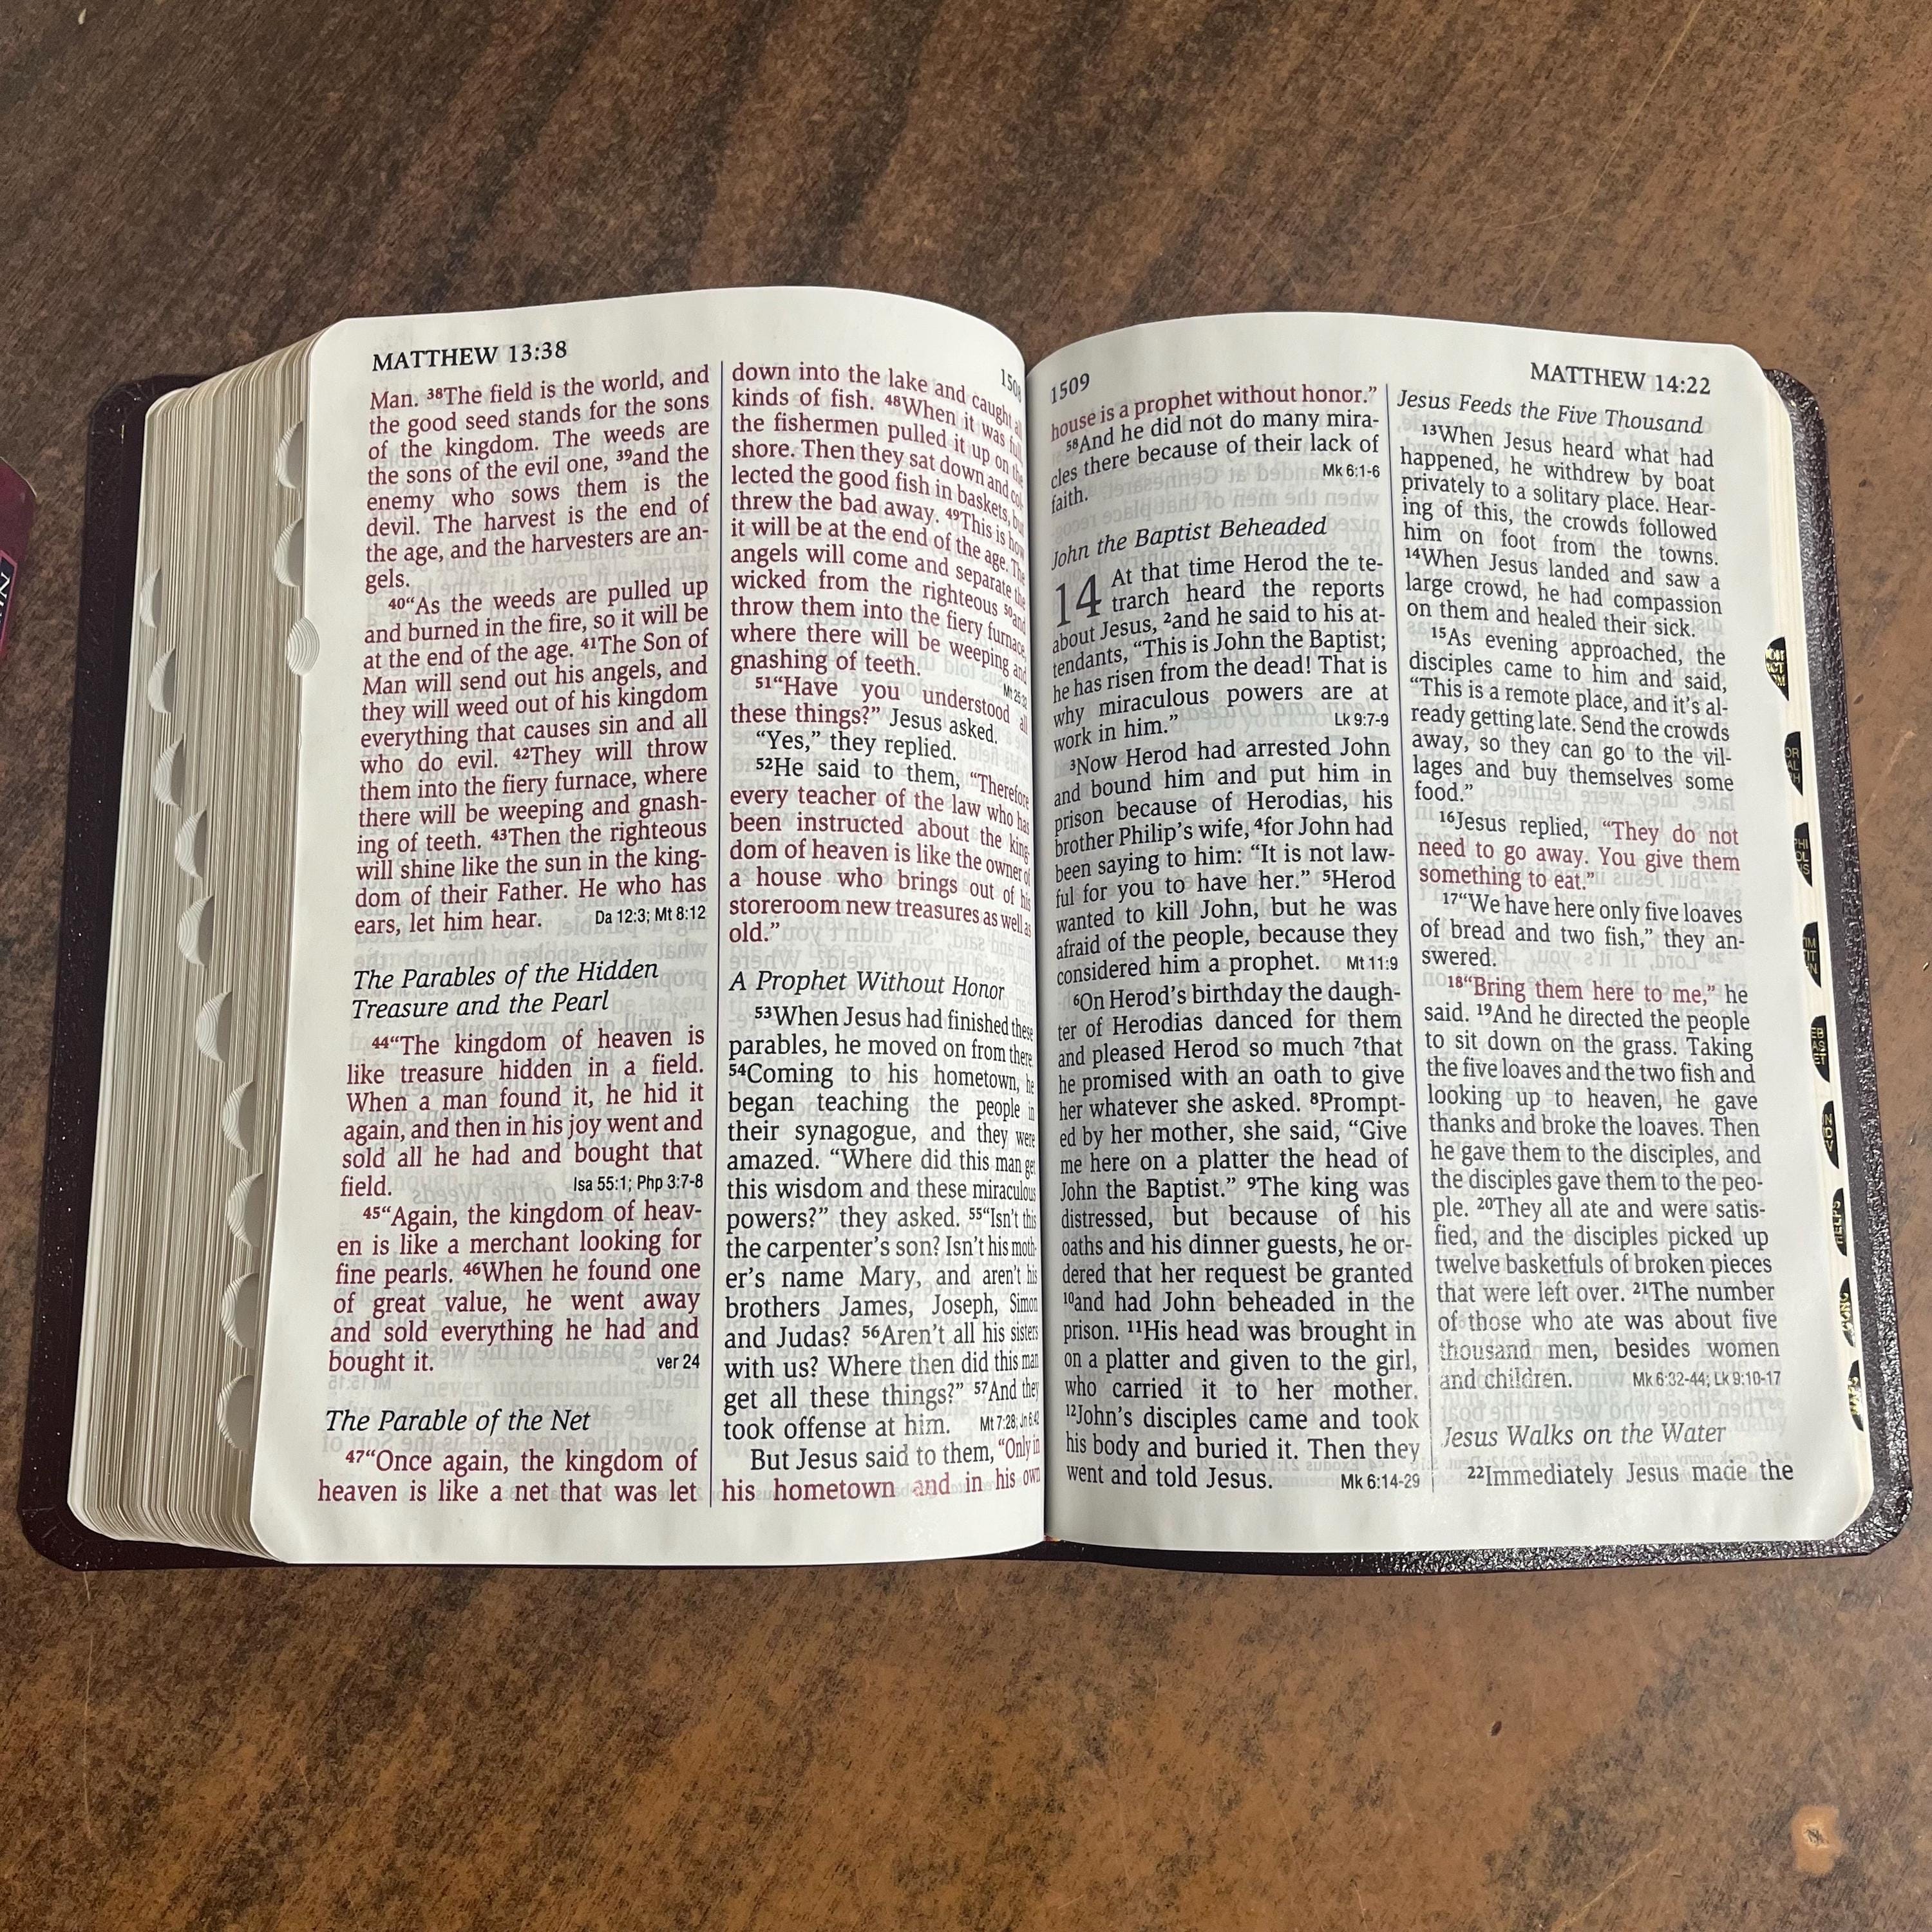 MATTHEW 13:38
Man. 38The field is the world, and
the good seed stands for the sons
of the kingdom. The weeds are
the sons of the evil one, 39and the
enemy who sows them is the
devil. The harvest is the end of
the age, and the harvesters are an-
gels.
40“As the weeds are pulled up
and burned in the fire, so it will be
at the end of the age. 41The Son of
Man will send out his angels, and
they will weed out of his kingdom
everything that causes sin and all
who do evil. 42They will throw
them into the fiery furnace, where
there will be weeping and gnash-
ing of teeth. 43Then the righteous
will shine like the sun in the king-
dom of their Father. He who has
ears, let him hear. Da 12:3; Mt 8:12
The Parables of the Hidden
Treasure and the Pearl
44“The kingdom of heaven is
like treasure hidden in a field.
When a man found it, he hid it
again, and then in his joy went and
sold all he had and bought that
field. Isa 55:1; Php 3:7-8
45“Again, the kingdom of heav-
en is like a merchant looking for
fine pearls. 46When he found one
of great value, he went away
and sold everything he had and
bought it. ver 24
The Parable of the Net
47“Once again, the kingdom of
heaven is like a net that was let
down into the lake and caught all
kinds of fish. 48When it was full,
the fishermen pulled it up on the
shore. Then they sat down and col-
lected the good fish in baskets, but
threw the bad away. 49This is how
it will be at the end of the age. The
angels will come and separate the
wicked from the righteous 50and
throw them into the fiery furnace,
where there will be weeping and
gnashing of teeth.
51“Have you understood all
these things?” Jesus asked.
“Yes,” they replied.
52He said to them, “Therefore
every teacher of the law who has
been instructed about the king-
dom of heaven is like the owner of
a house who brings out of his
storeroom new treasures as well as
old.”
A Prophet Without Honor
53When Jesus had finished these
parables, he moved on from there.
54Coming to his hometown, he
began teaching the people in
their synagogue, and they were
amazed. “Where did this man get
this wisdom and these miraculous
powers?” they asked. 55“Isn’t this
the carpenter’s son? Isn’t his moth-
er’s name Mary, and aren’t his
brothers James, Joseph, Simon
and Judas? 56Aren’t all his sisters
with us? Where then did this man
get all these things?” 57And they
took offense at him. Mt 7:28; Jn 6:42
But Jesus said to them, “Only in
his hometown and in his own
1509
MATTHEW 14:22
house is a prophet without honor.”
58And he did not do many mira-
cles there because of their lack of
faith. Mk 6:1-6
John the Baptist Beheaded
14 At that time Herod the te-
trarch heard the reports
about Jesus, 2and he said to his at-
tendants, “This is John the Baptist;
he has risen from the dead! That is
why miraculous powers are at
work in him.” Lk 9:7-9
3Now Herod had arrested John
and bound him and put him in
prison because of Herodias, his
brother Philip’s wife, 4for John had
been saying to him: “It is not law-
ful for you to have her.” 5Herod
wanted to kill John, but he was
afraid of the people, because they
considered him a prophet. Mt 11:9
6On Herod’s birthday the daugh-
ter of Herodias danced for them
and pleased Herod so much 7that
he promised with an oath to give
her whatever she asked. 8Prompt-
ed by her mother, she said, “Give
me here on a platter the head of
John the Baptist.” 9The king was
distressed, but because of his
oaths and his dinner guests, he or-
dered that her request be granted
10and had John beheaded in the
prison. 11His head was brought in
on a platter and given to the girl,
who carried it to her mother.
12John’s disciples came and took
his body and buried it. Then they
went and told Jesus. Mk 6:14-29
Jesus Feeds the Five Thousand
13When Jesus heard what had
happened, he withdrew by boat
privately to a solitary place. Hear-
ing of this, the crowds followed
him on foot from the towns.
14When Jesus landed and saw a
large crowd, he had compassion
on them and healed their sick.
15As evening approached, the
disciples came to him and said,
“This is a remote place, and it’s al-
ready getting late. Send the crowds
away, so they can go to the vil-
lages and buy themselves some
food.”
16Jesus replied, “They do not
need to go away. You give them
something to eat.”
17“We have here only five loaves
of bread and two fish,” they an-
swered.
18“Bring them here to me,” he
said. 19And he directed the people
to sit down on the grass. Taking
the five loaves and the two fish and
looking up to heaven, he gave
thanks and broke the loaves. Then
he gave them to the disciples, and
the disciples gave them to the peo-
ple. 20They all ate and were satis-
fied, and the disciples picked up
twelve basketfuls of broken pieces
that were left over. 21The number
of those who ate was about five
thousand men, besides women
and children. Mk 6:32-44; Lk 9:10-17
Jesus Walks on the Water
22Immediately Jesus made the